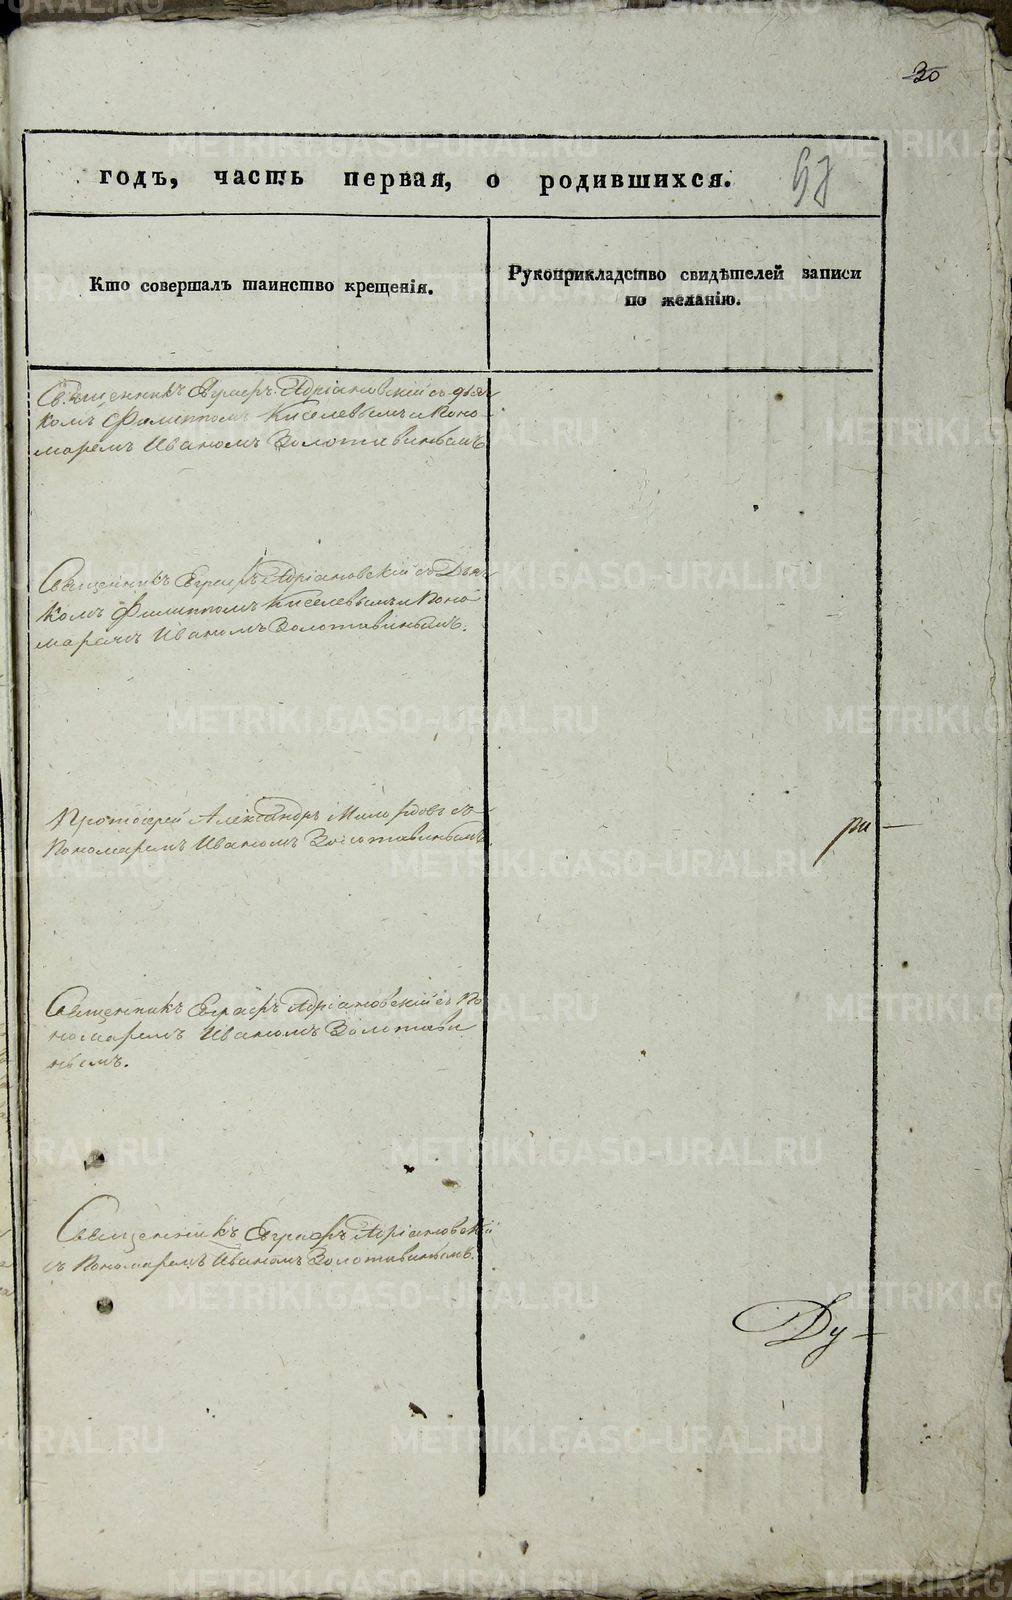 30
годъ, часть первая, о родившихся.
57
Кто совершалъ таинство крещенія.
Рукоприкладство свидѣтелей записи
по желанію.
Священникъ Адріановскій съ дья-
комъ Филиппомъ Киселевымъ и Поно-
маремъ Иваномъ Золотавинымъ
Священникъ Евграфъ Адріановскій съ Дья-
комъ Филиппомъ Киселевымъ и Поно-
маремъ Иваномъ Золотавинымъ.
Протоіерей Александръ съ
Пономаремъ Иваномъ Золотавинымъ
ри-
Священникъ Евграфъ Адріановскій съ По
номаремъ Иваномъ Золотави
нымъ.
Священникъ Евграфъ Адріановскій
съ Пономаремъ Иваномъ Золотавинымъ.
Ду-
METRIKI.GASO-URAL.RU